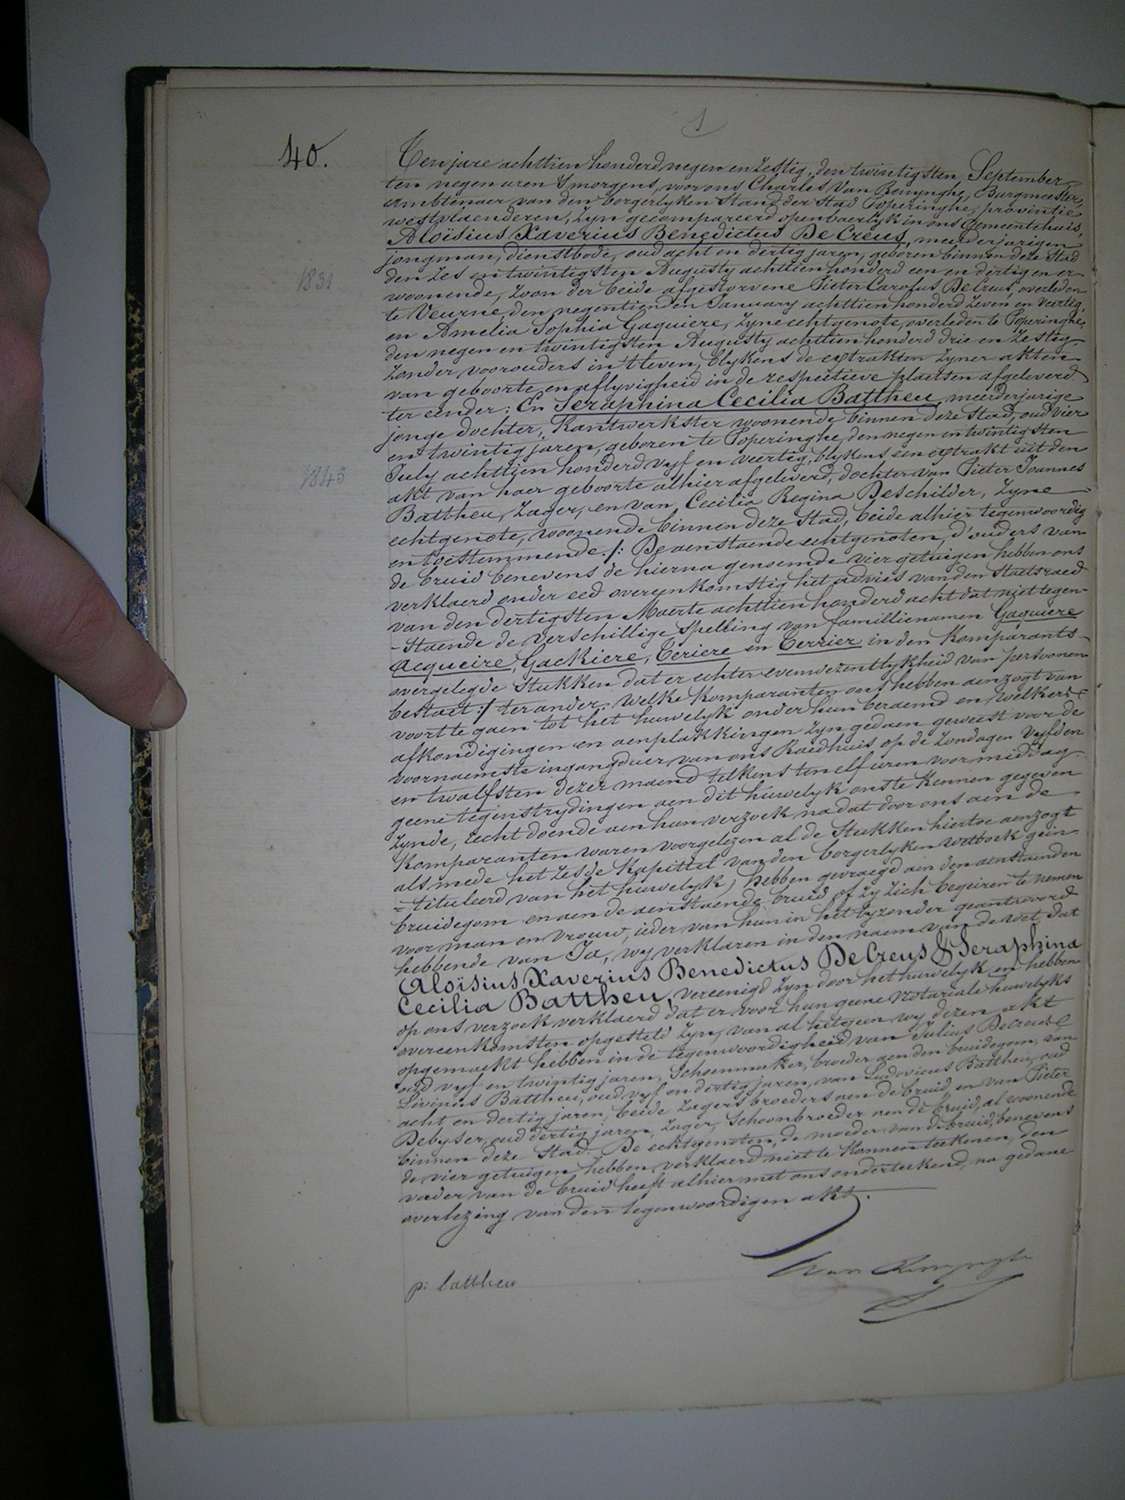 40.
Ten jare achttien honderd negen en zestig, den twintigsten September,
ten negen uren 's morgens, voor ons Charles Van Renynghe, Burgmeester,
Ambtenaer van den borgerlyken stand der Stad Poperinghe, provintie
westvlaenderen, zyn gecompareerd openbaerlyk in ons Gemeentehuis,
Aloïsius Xaverius Benedictus De Creus, meerderjarigen
jongman, dienstbode, oud acht en dertig jaren, geboren binnen deze Stad
den zes en twintigsten Augusty achttien honderd een en dertig en er
1831
woonende, zoon der beide afgestorvene Pieter Carolus De Creus overleden
te Veurne, den negentien en January achttien honderd zeven en veertig,
en Amelia Sophia Gaquiere, zyne echtgenote, overleden te Poperinghe,
den negen en twintigsten Augusty achttien honderd drie en zestig
zonder voorouders in 't leven, blykens de extrakten zyner akten
van geboorte en aflyvigheid in de respectieve plaetsen afgeleverd
ter eender; En Seraphina Cecilia Battheu, meerderjarige
jonge dochter, Kantwerkster woonende binnen deze Stad, oud vier
en twintig jaren, geboren te Poperinghe, den negen en twintigsten
July achttien honderd vyf en veertig, blykens een extrakt uit den
1845
akt van haer geboorte alhier afgeleverd, dochter van Pieter Joannes
Battheu, Zager, en van Cecilia Regina Deschilder, zyne
echtgenote, woonende binnen deze Stad, beide alhier tegenwoordig
en toestemmende. /: De aenstaende echtgenoten, d'ouders van
de bruid benevens de hierna genoemde vier getuigen hebben ons
verklaerd onder eed overeenkomstig het advies van den Staetsraed
van den dertigsten Maerte achttien honderd acht dat niet tegen-
-staende de verschillige spelling van familienamen Gaquiere
Acqueire, Gackiere, Ceriere en Cerrier in den Komparants-
overgelegde Stukken dat er echter evenwezentlykheid van persoonen
bestaet :/ ter ander. Welke Komparanten ons hebben aenzogt van
voort te gaen tot het huwelyk onder hun beraemd en welkers
afkondigingen en aenplakkingen zyn gedaen geweest voor de
voornaemste ingangdeur van ons Raedhuis op de Zondagen vyfden
en twalfsten dezer maend telkens ten elf uren voor middag
geene tegenstrydingen aen dit huwelyk ons te kennen gegeven
zynde, recht doende aen hun verzoek na dat door ons aen de
Komparanten waren voorgelezen al de Stukken hiertoe aenzogt
als mede het zesde Kapittel van den borgerlyken wetboek gein-
=tituleerd van het huwelyk, hebben gevraegd aen den aenstaenden
bruidegom en aen de aenstaende bruid of zy zich begeiren te nemen
voor man en vrouw, ieder van hun in het byzonder geantwoord
hebbende van Ja, wy verklaren in den naem van de wet dat
Aloisius Xaverius Benedictus De Creus & Seraphina
Cecilia Battheu, vereenigd zyn door het huwelyk en hebben
op ons verzoek verklaerd dat er voor hun geene Notariale huwelyks
overeenkomsten opgesteld zyn, van al hetgeen wy dezen akt
opgemaekt hebben in de tegenwoordigheid van Julius Decreus
oud vyf en twintig jaren, Schoenmaker, broeder aen den bruidegom, van
Livinus Battheu, oud vyf en dertig jaren, van Ludovicus Battheu, oud
acht en dertig jaren, beide Zagers broeders aen de bruid, en van Pieter
Debyser, oud dertig jaren, Zager, Schoonbroeder aen de bruid, al woonende
binnen deze Stad. De echtgenoten, de moeder van de bruid, benevens
de vier getuigen hebben verklaerd niet te konnen teekenen, den
vader van de bruid heeft alhier met ons onderteekend, na gedane
overlezing van den tegenwoordigen akt.
p: battheu
Van Renynghe